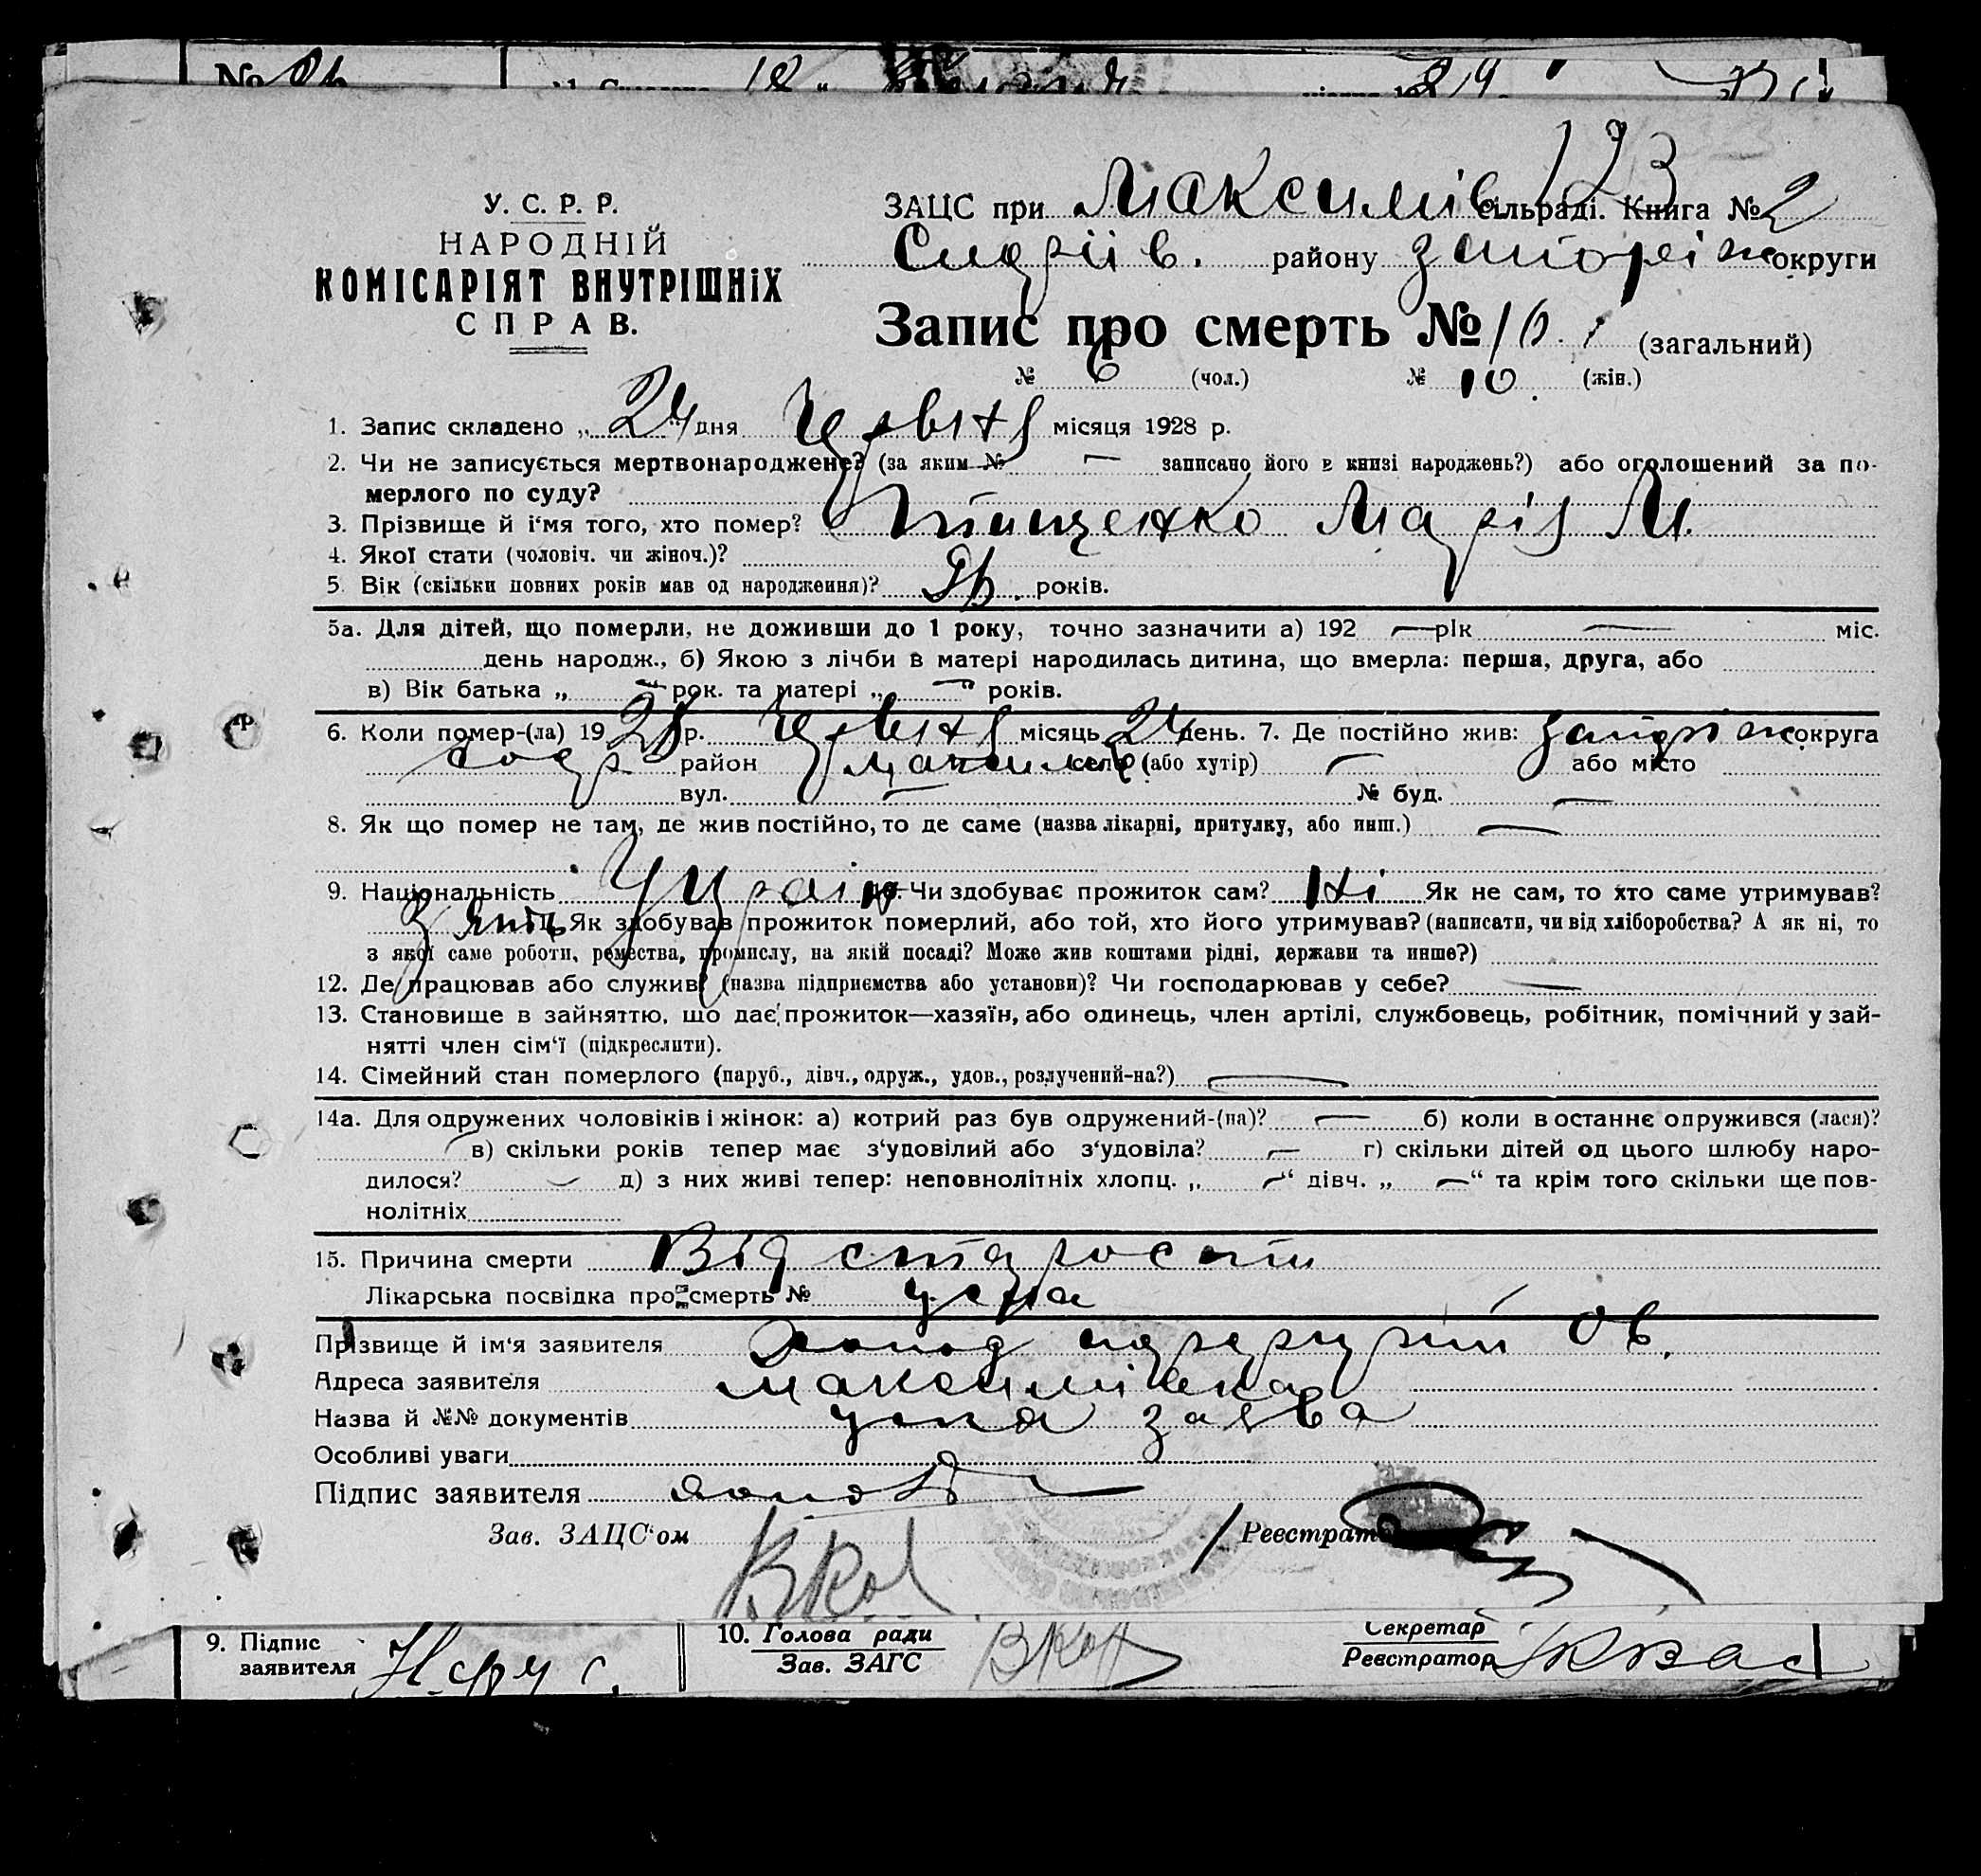 193
У. С. Р. Р.
НАРОДНІЙ
КОМІСАРІЯТ ВНУТРІШНіХ
СПРАВ.
ЗАЦС при Максимів сільраді. Книга № 2
району Запоріж округи
Запис про смерть № 16. (загальний)
№ 6 (чол.) № 10. (жін.)
1. Запис складено „ 24 " дня Червня місяця 1928 р.
2. Чи не записується мертвонароджене? (за яким № — записано його в книзі народжень?) або оголошений за по-
мерлого по суду?
3. Прізвище й і‘мя того, хто помер? Тищенко Марія М.
4. Якої стати (чоловіч. чи жіноч.)?
5. Вік (скільки повних років мав од народження)? років.
5а. Для дітей, що померли, не доживши до 1 року, точно зазначити а) 192 — рік — міс.
день народж., б) Якою з лічби в матері народилась дитина, що вмерла: перша, друга, або
в) Вік батька „ — " рок. та матері „ — " років.
6. Коли помер-(ла) 19 28 р. Червня місяць 24 день. 7. Де постійно жив: Запоріж округа
район Максимів село (або хутір) — або місто
вул. — № буд. —
8. Як що помер не там, де жив постійно, то де саме (назва лікарні, притулку, або инш.) —
9. Національність Украін 10. Чи здобуває прожиток сам? Ні Як не сам, то хто саме утримував?
Зять 11. Як здобував прожиток померлий, або той, хто його утримував? (написати, чи від хліборобства? А як ні, то
з якої саме роботи, ремества, промислу, на якій посаді? Може жив коштами рідні, держави та инше?)
12. Де працював або служив? (назва підприємства або установи)? Чи господарював у себе? —
13. Становище в зайняттю, що дає прожиток—хазяїн, або одинець, член артілі, службовець, робітник, помічний у зай-
нятті член сім‘ї (підкреслити).
14. Сімейний стан померлого (паруб., дівч., одруж., удов., розлучений-на?) —
14а. Для одружених чоловіків і жінок: а) котрий раз був одружений-(на)? — б) коли в останнє одружився (лася)?
— в) скільки років тепер має з‘удовілий або з‘удовіла? — г) скільки дітей од цього шлюбу наро-
дилося? — д) з них живі тепер: неповнолітніх хлопц. „ — “ дівч. „ — “ та крім того скільки ще пов-
нолітніх
15. Причина смерти Від старости
Лікарська посвідка про смерть № усна
Прізвище й ім‘я заявителя
Адреса заявителя Максимівка
Назва й №№ документів усна заява
Особливі уваги
Підпис заявителя
Зав. ЗАЦС‘ом Реєстрат
9. Підпис
заявителя
10. Голова ради
Зав. ЗАГС
Секретар
Реєстратор